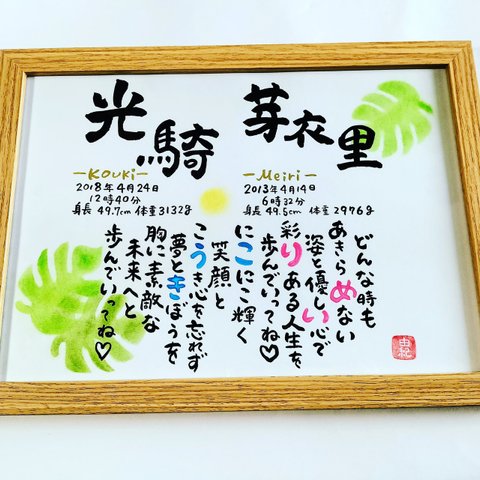 芽衣里
ーMeiriー
2013年4月14日
6時32分
身長 49.5cm 体重 2976g
光騎
ーKoukiー
2018年4月24日
12時40分
身長 49.7cm 体重 3132g
どんな時も
あきらめない
姿と優しい心で
彩りある人生を
歩んでいってね♡
にこにこ輝く
笑顔と
こうき心を忘れず
夢ときぼうを
胸に素敵な
未来へと
歩んでいってね♡
由紀